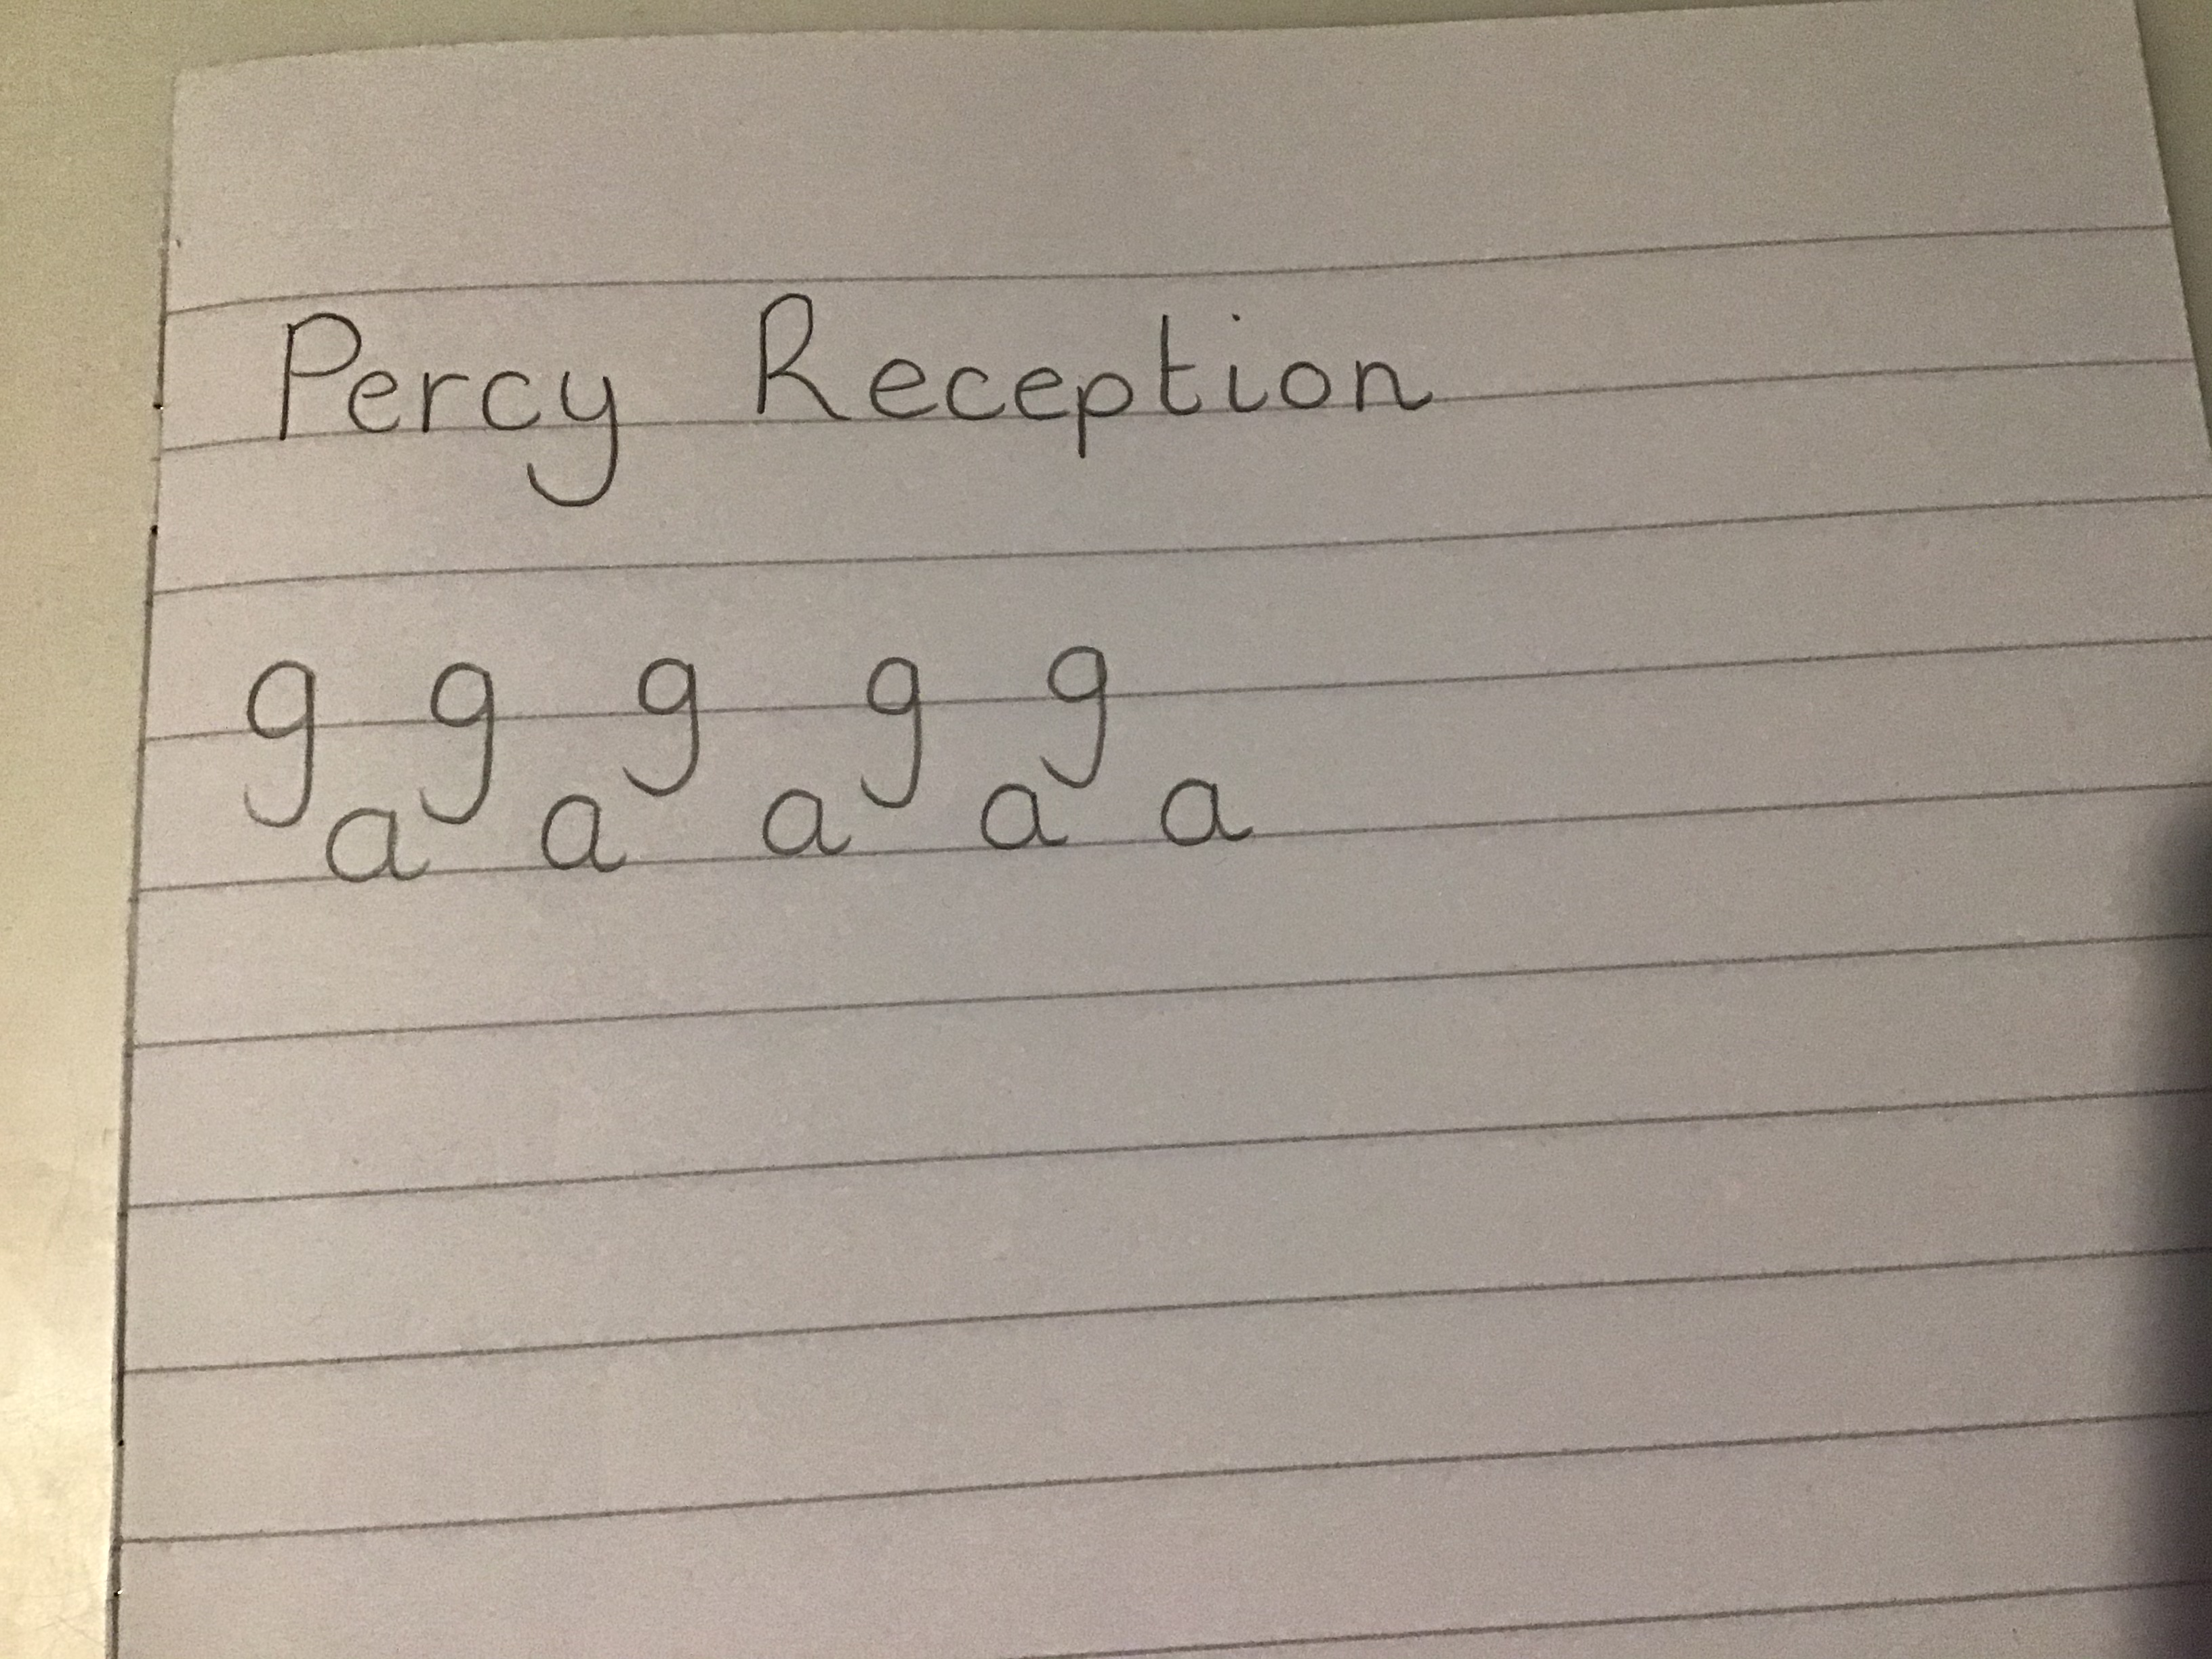 Percy Reception
g g g g g
a a a a a